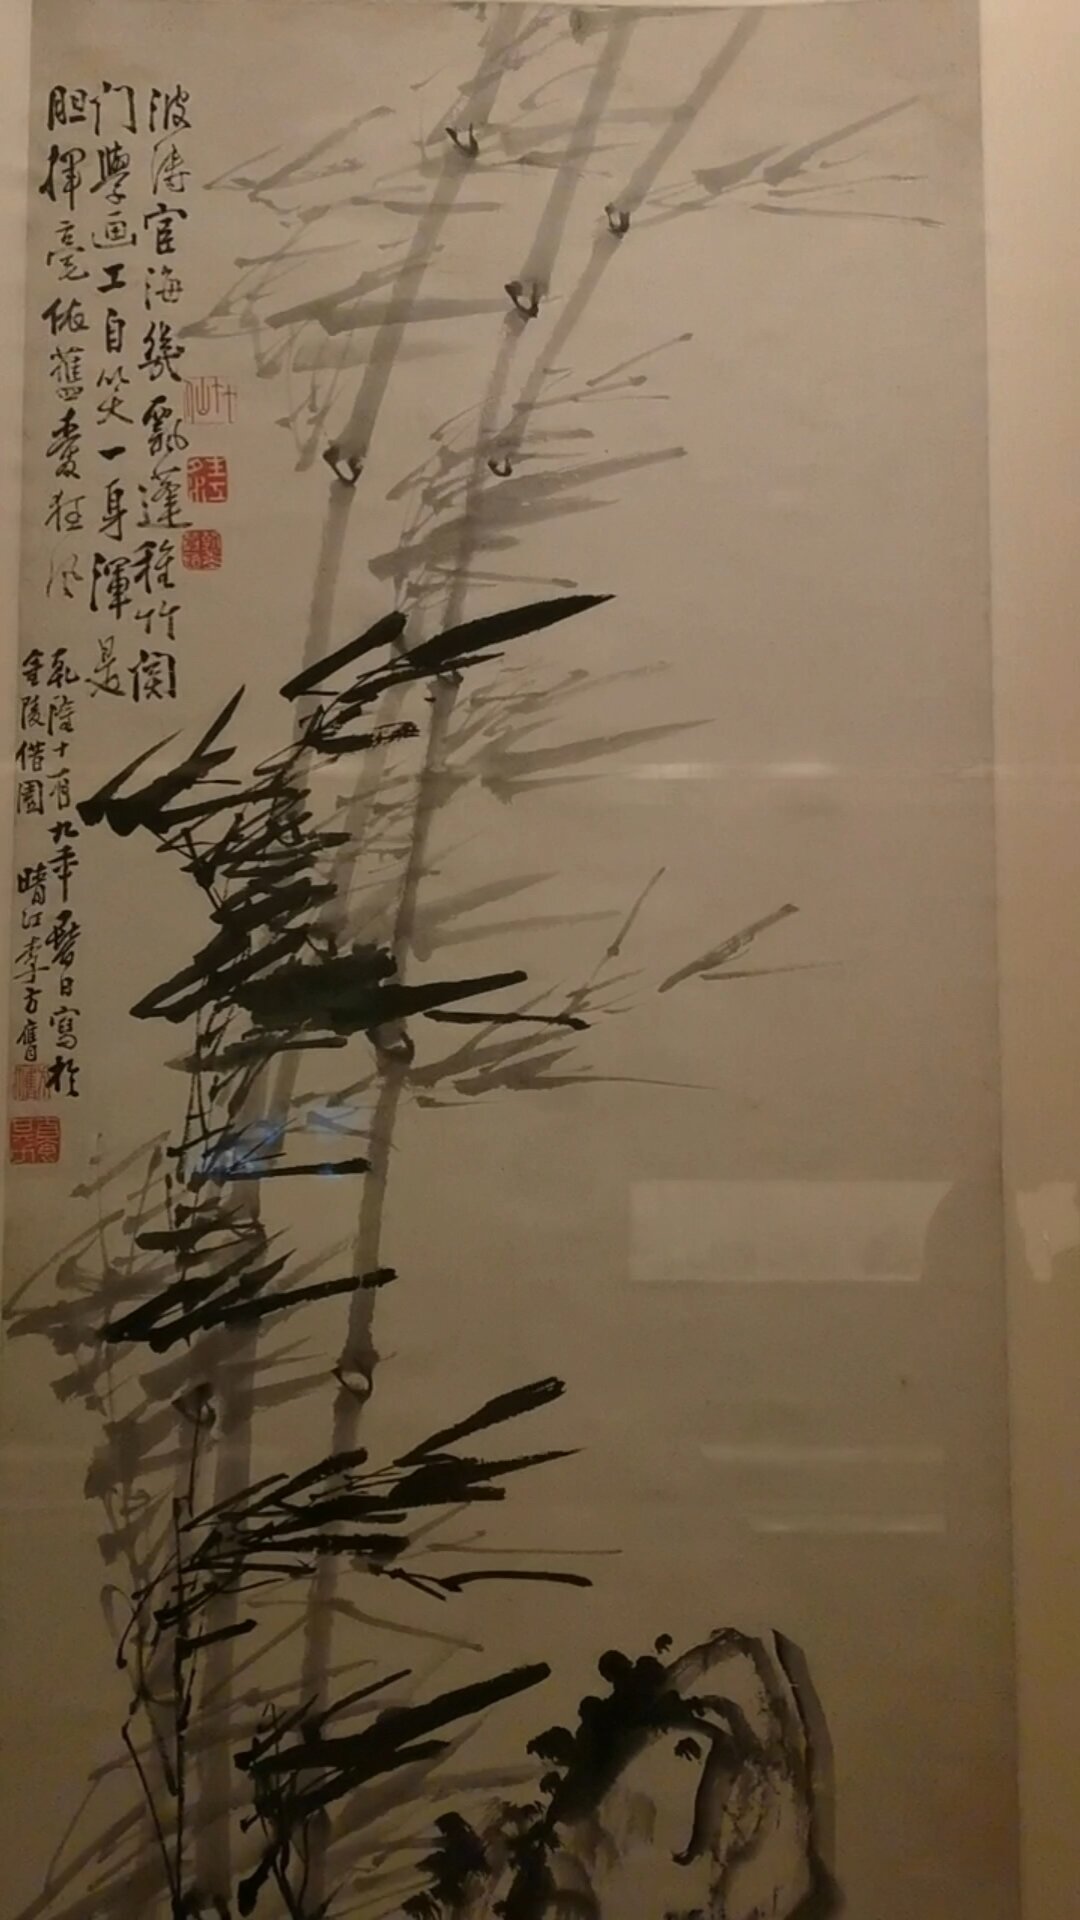 波涛宦海几飘蓬種竹関
门學画工自笑一身渾是
胆揮毫依舊愛狂风
乾隆十有九年醫日寫於
金陵借園 晴江李方膺